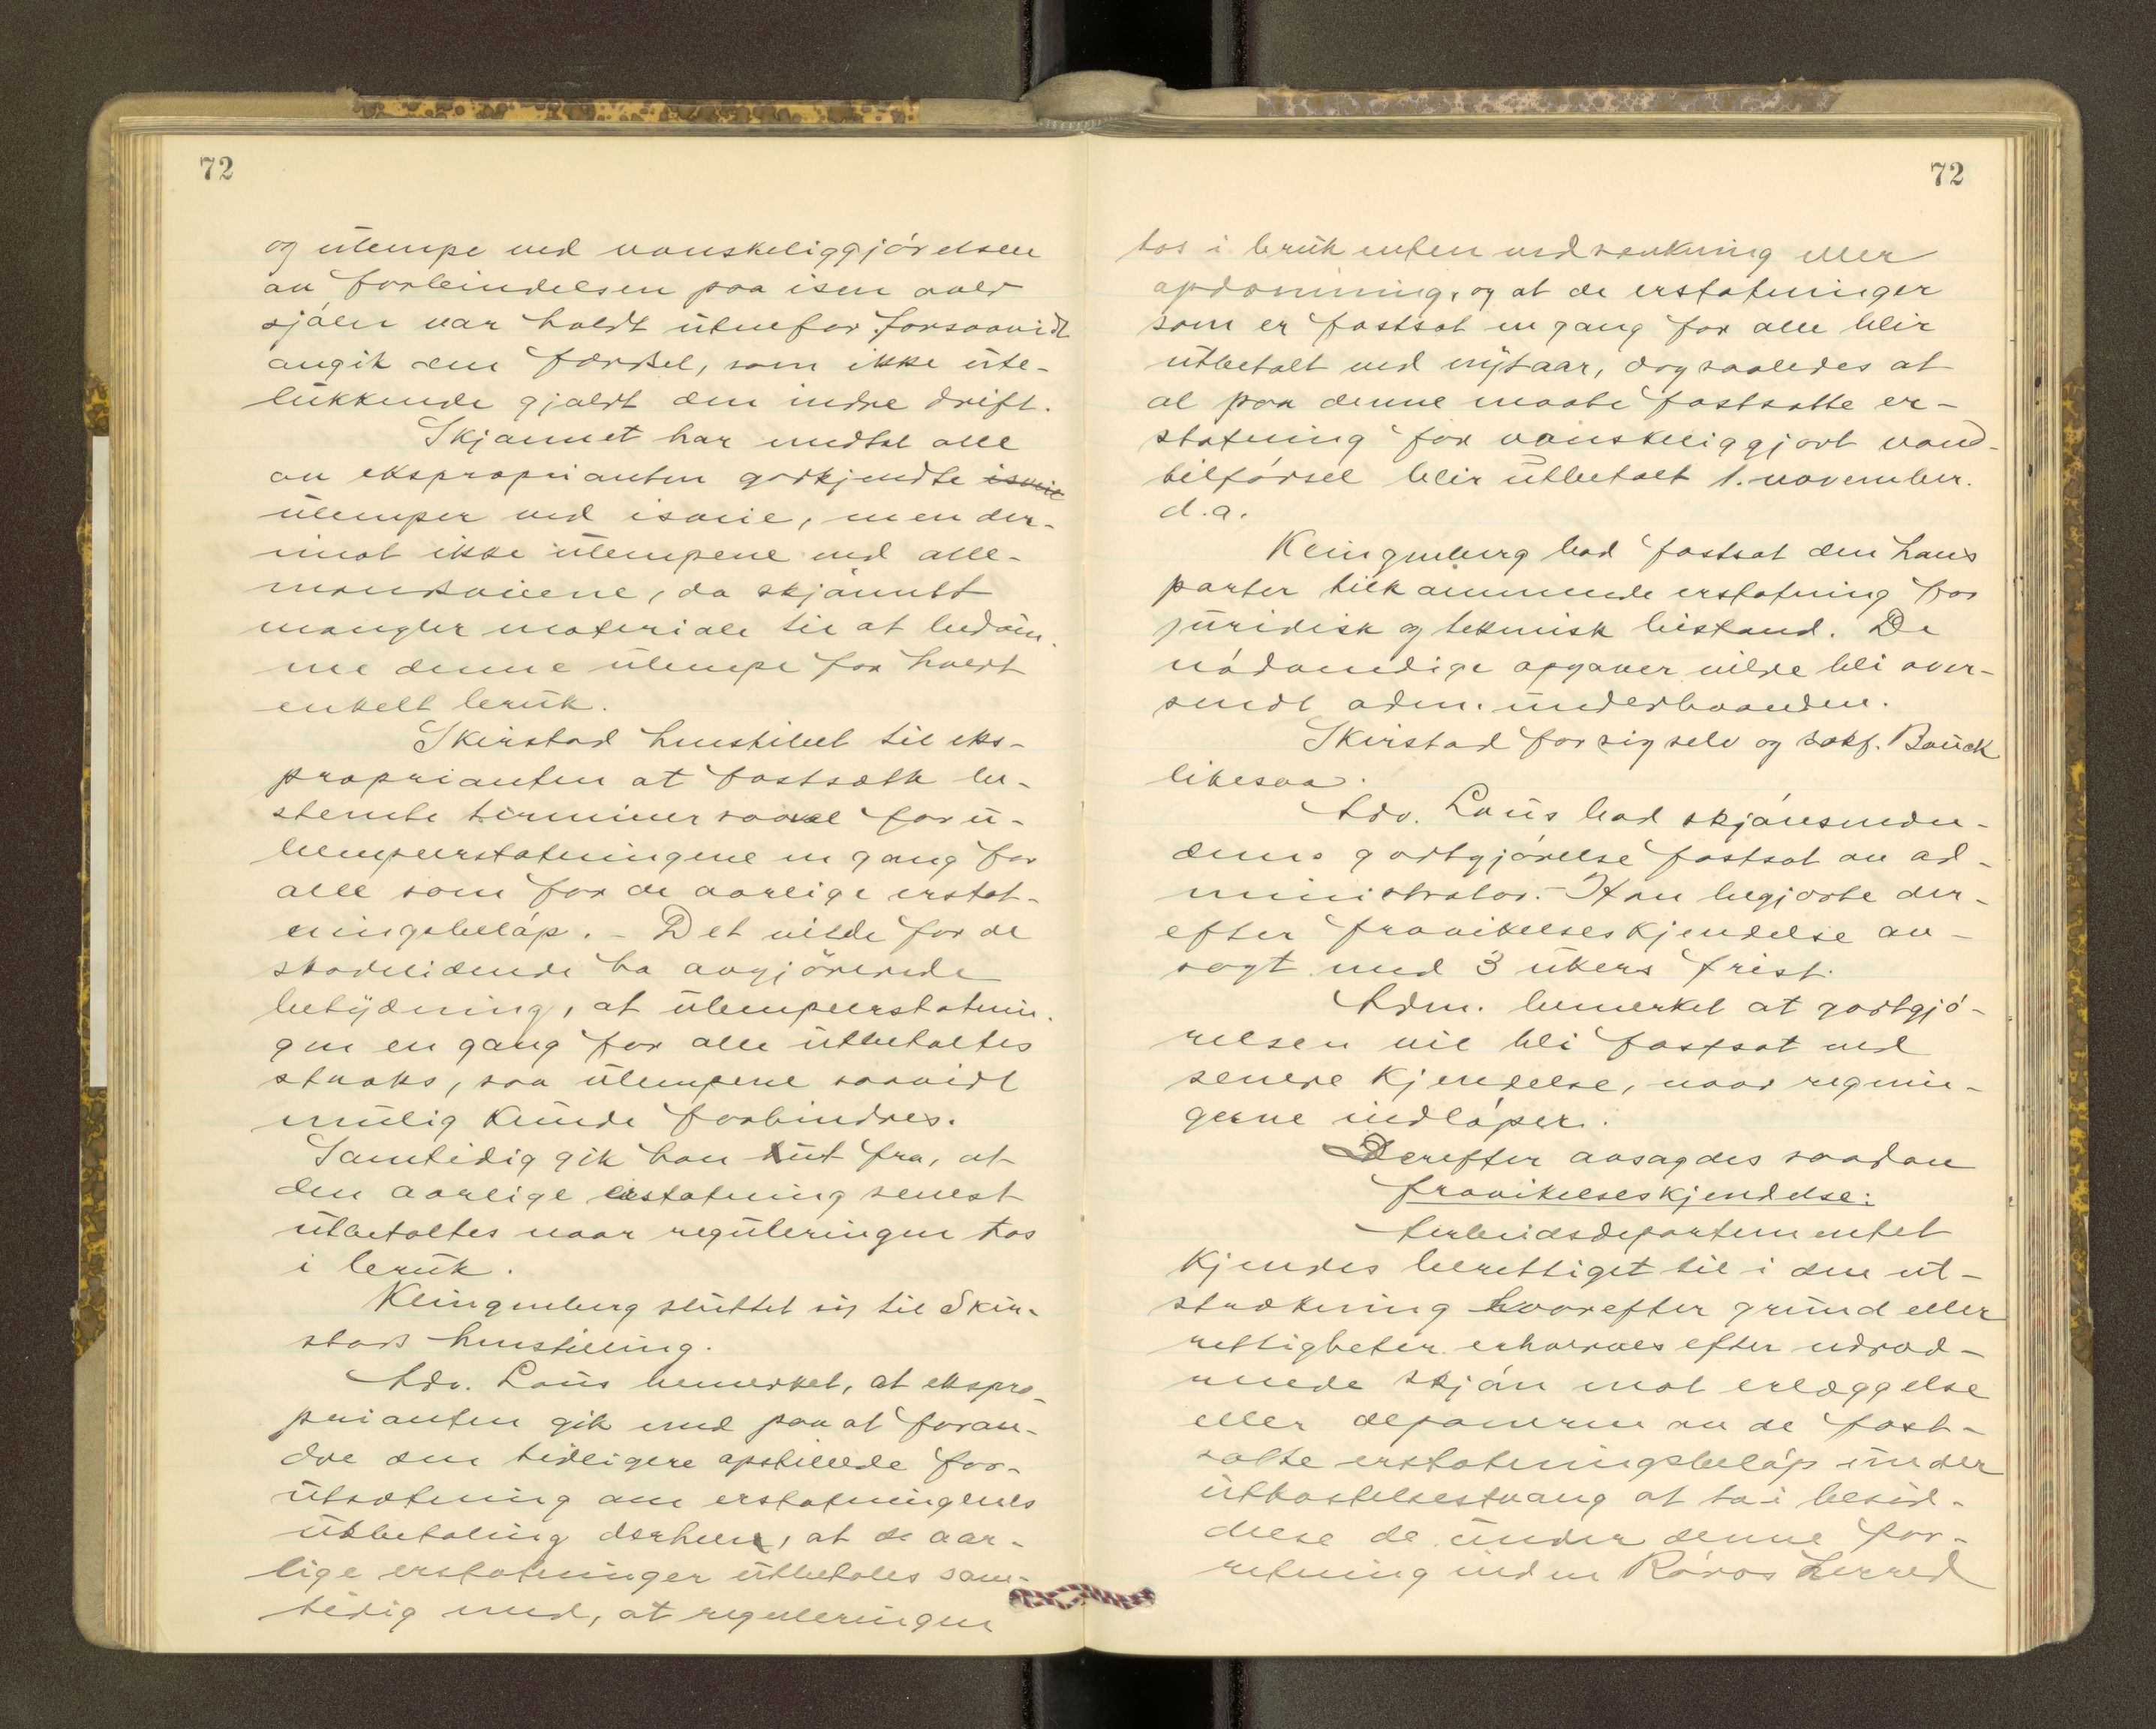 72
og ulempe ved vanskeliggjørelsen
av forbindelsen paa isen over
sjøen var holdt utenfor forsaavidt
angik den færdsel, som ikke ute-
lukkende gjaldt den indre drift.
Skjønnet har medtat alle
av eksproprianten godkjendte isveie
ulemper ved isveie, men der-
imot ikke ulempene ved alle-
mandsveiene, da skjønnet
mangler materiale til at bedøm-
me denne ulempe for hvert
enkelt bruk.
Skirstad henstillet til eks-
proprianten at fastsætte be-
stemte terminer saavel for u-
lempeerstatningene en gang for
alle som for de aarlige erstat-
ningsbeløp. - Det vilde for de
skadelidende ha avgjørende
betydning, at ulempeerstatnin-
gen en gang for alle utbetaltes
straks, saa ulempene saavidt
mulig kunde forhindres.
Samtidig gik han ut fra, at
den aarlige erstatning senest
utbetaltes naar reguleringen tas
i bruk.
Klingenberg sluttet sig til Skir-
stads henstilling.
Adv. Lous bemerket, at ekspro-
prianten gik med paa at foran-
dre den tidligere opstillede for-
utsætning om erstatningenes
utbetaling derhen, at de aar-
lige erstatninger utbetales sam-
tidig med, at reguleringen
72
tas i bruk enten ved sænkning eller
opdæmning, og at de erstatninger
som er fastsat en gang for alle blir
utbetalt ved nytaar, dog saaledes at
al paa denne maate fastsatte er-
statning for vanskeliggjort vand-
tilførsel blir utbetalt 1. november.
d.a.
Klingenberg bad fastsat den hans
parter tilkommende erstatning for
juridisk og teknisk bistand. De
nødvendige opgaver vilde bli over-
sendt adm. underhaanden.
Skirstad for sig selv og sakf. Bauck
likesaa.
Adv. Lous bad skjønsmæn-
denes godtgjørelse fastsat av ad-
ministrator. - Han begjærte der-
efter fravikelseskjendelse av-
sagt med 3 ukers frist.
Adm. bemerket at godtgjø-
relsen vil bli fastsat ved
senere kjendelse, naar regnin-
gerne indløper.
Derefter avsagdes saadan
fravikelseskjendelse:
Arbeidsdepartementet
kjendes berettiget til i den ut-
strækning hvorefter grund eller
rettigheter erhverves efter nedvæd-
nede skjøn mot erlæggelse
eller deponeren av de fast-
satte erstatningsbeløp under
utkastelsestvang at ta i besid-
delse de under denne for-
retning inden Røros herred